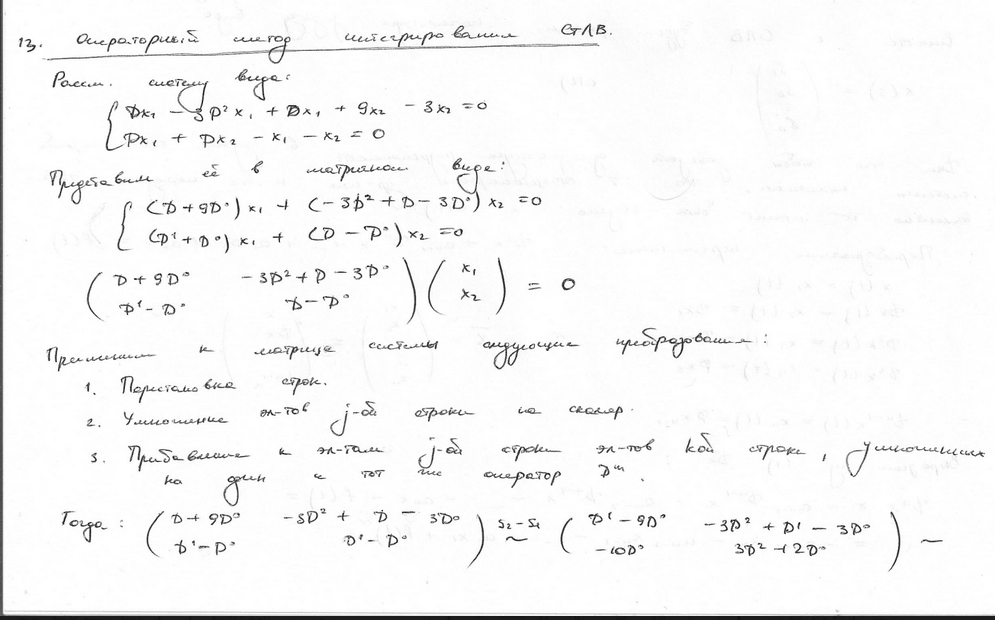 13. Операторный метод интегрирования СЛВ.
Рассм. систему вида:
Dx₁ - 3D²x₁ + Dx₁ + 9x₂ - 3x₂ = 0
Dx₁ + Dx₂ - x₁ - x₂ = 0
Представим её в матричном виде:
(D + 9D°)x₁ + (-3D² + D - 3D°)x₂ = 0
(D¹ + D°)x₁ + (D - D°)x₂ = 0
( D + 9D°   -3D² + D - 3D° ) ( x₁ ) = 0
( D¹ - D°   D - D° ) ( x₂ )
Применим к матрице системы следующие преобразования:
1. Перестановка строк.
2. Умножение эл-тов j-ой строки на скаляр.
3. Прибавление к эл-там j-ой строки эл-тов k-ой строки, умноженных
на один и тот же оператор Dᵐ.
Тогда: ( D + 9D°   -3D² + D - 3D° ) S₂-S₁ ~ ( D¹ - 9D°   -3D² + D¹ - 3D° ) ~
( D¹ - D°   D¹ - D° ) ( -10D°   3D² + 2D° )